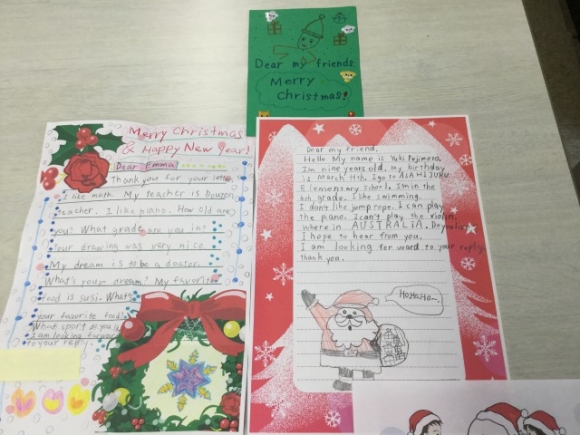 Dear my friends
Merry
Christmas!
Merry Christmas
& Happy New Year!
Dear Emma
Thank you for your letter
I like math. My teacher is
teacher. I like piano. How old are
you? What grade are you in?
Your drawing was very nice.
My dream is to be a doctor.
What's your dream? My favorite
food is susi. What
your favorite food?
What sport do you
I am looking forward
to your reply.
Dear my friend,
Hello My name is Yuki
I'm nine years old. My birthday
is March 11th. I go to
Elemensary school. I'm in the
4th grade. I like swimming.
I don't like jump rope. I can play
the piano. I can't play the violin.
Where in AUSTRALIA. Do you
I hope to hear from you.
I am looking for ward to your reply
thank you.
HoHoHo~